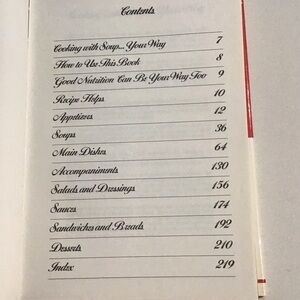 Contents
Cooking with Soup... Your Way 7
How to Use This Book 8
Good Nutrition Can Be Your Way Too 9
Recipe Helps 10
Appetizers 12
Soups 36
Main Dishes 64
Accompaniments 130
Salads and Dressings 156
Sauces 174
Sandwiches and Breads 192
Desserts 210
Index 219